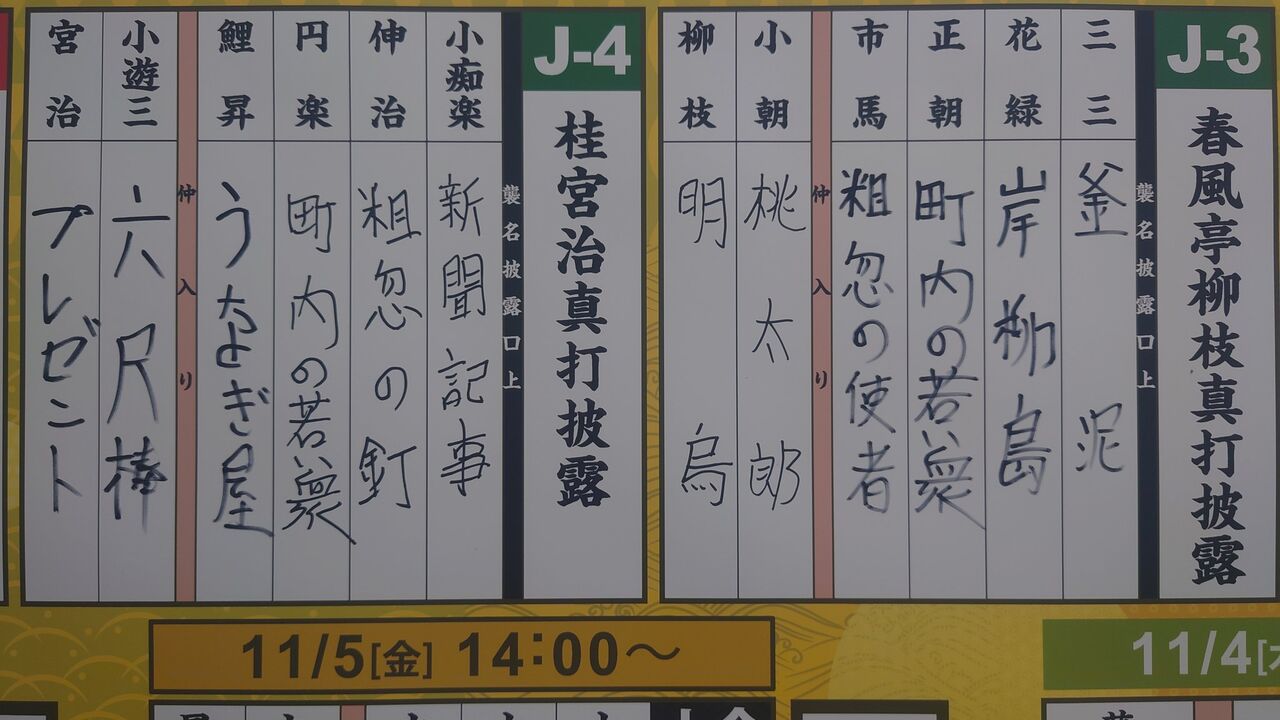 J-3
春風亭柳枝真打披露
襲名披露口上
三三
釜泥
花緑
岸柳島
正朝
町内の若い衆
市馬
粗忽の使者
仲入り
小朝
桃太郎
柳枝
明烏
J-4
桂宮治真打披露
襲名披露口上
小痴楽
新聞記事
伸治
粗忽の釘
円楽
町内の若い衆
鯉昇
うなぎ屋
仲入り
小遊三
六尺棒
宮治
プレゼント
11/4[
11/5[金] 14:00〜